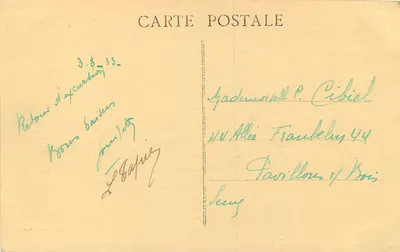 CARTE POSTALE
3-8-33.
Retour d'excursion
Bons baisers
Mademoiselle P. Cibiel
44 Allée Franklin 44
Pavillons s/ Bois